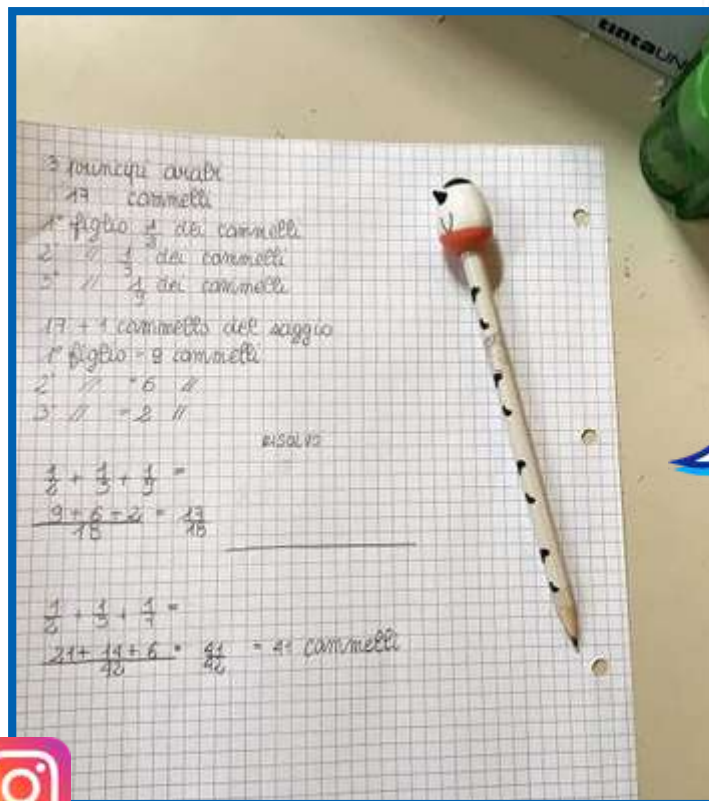 tintaUN
3 principi arabi
17 cammelli
1° figlio 1/2 dei cammelli
2° // 1/3 dei cammelli
3° // 1/9 dei cammelli
17 + 1 cammello del saggio
1° figlio = 9 cammelli
2° // = 6 //
3° // = 2 //
RISOLVO
1/2 + 1/3 + 1/9 =
9 + 6 + 2 / 18 = 17/18
1/2 + 1/3 + 1/7 =
21 + 14 + 6 / 42 = 41/42 = 41 cammelli